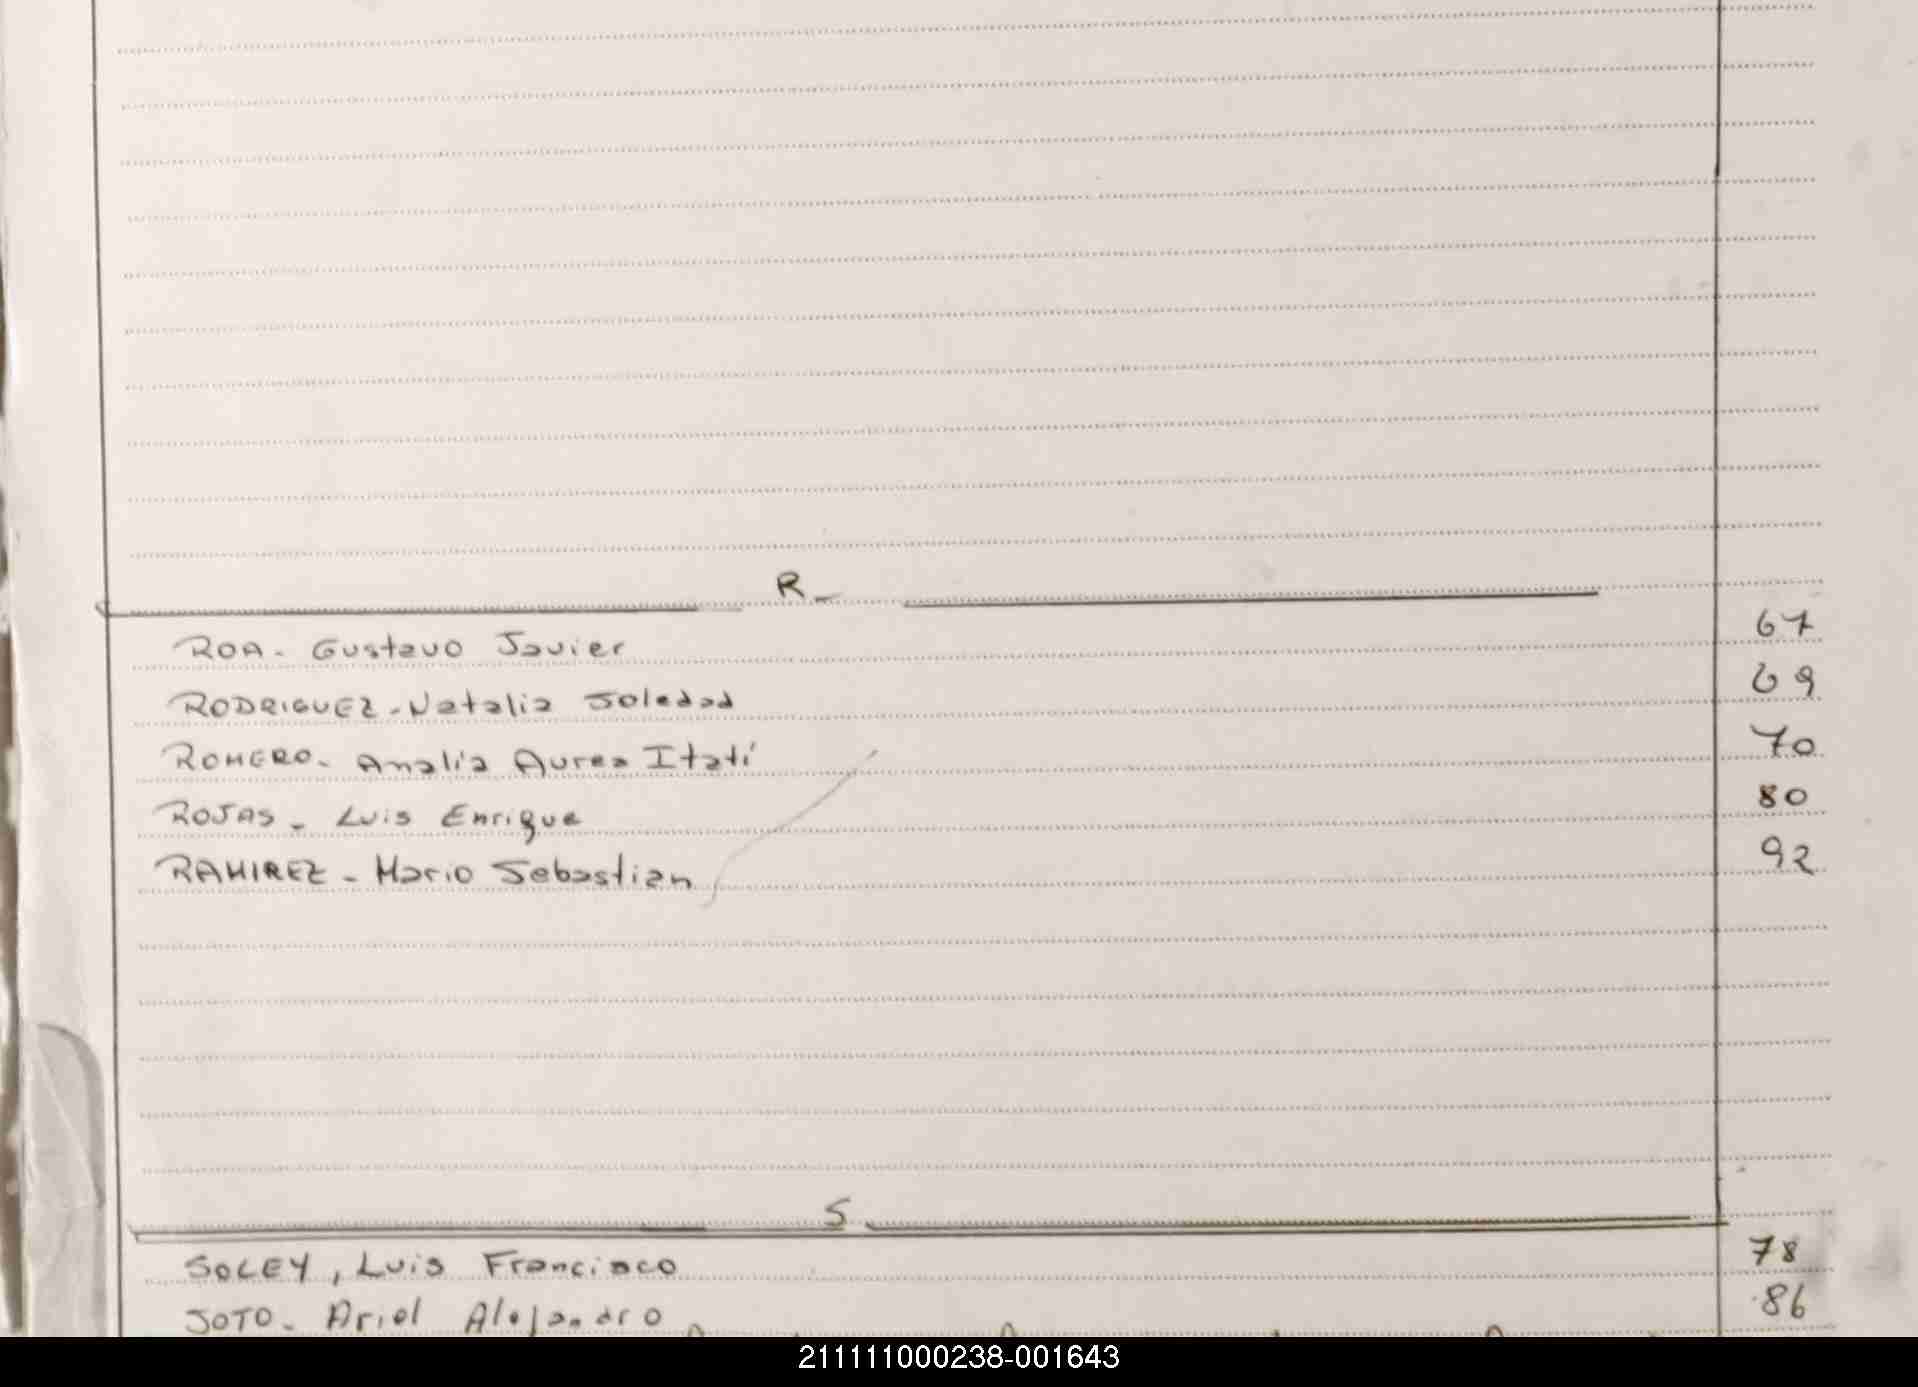 R_
ROA - Gustavo Javier 67
RODRIGUEZ - Natalia Soledad 69
ROMERO - Analía Aurea Itatí 70
ROJAS - Luis Enrique 80
RAMIREZ - Mario Sebastian 92
S
SOLEY, Luis Francisco 78
SOTO - Ariel Alejandro 86
211111000238-001643